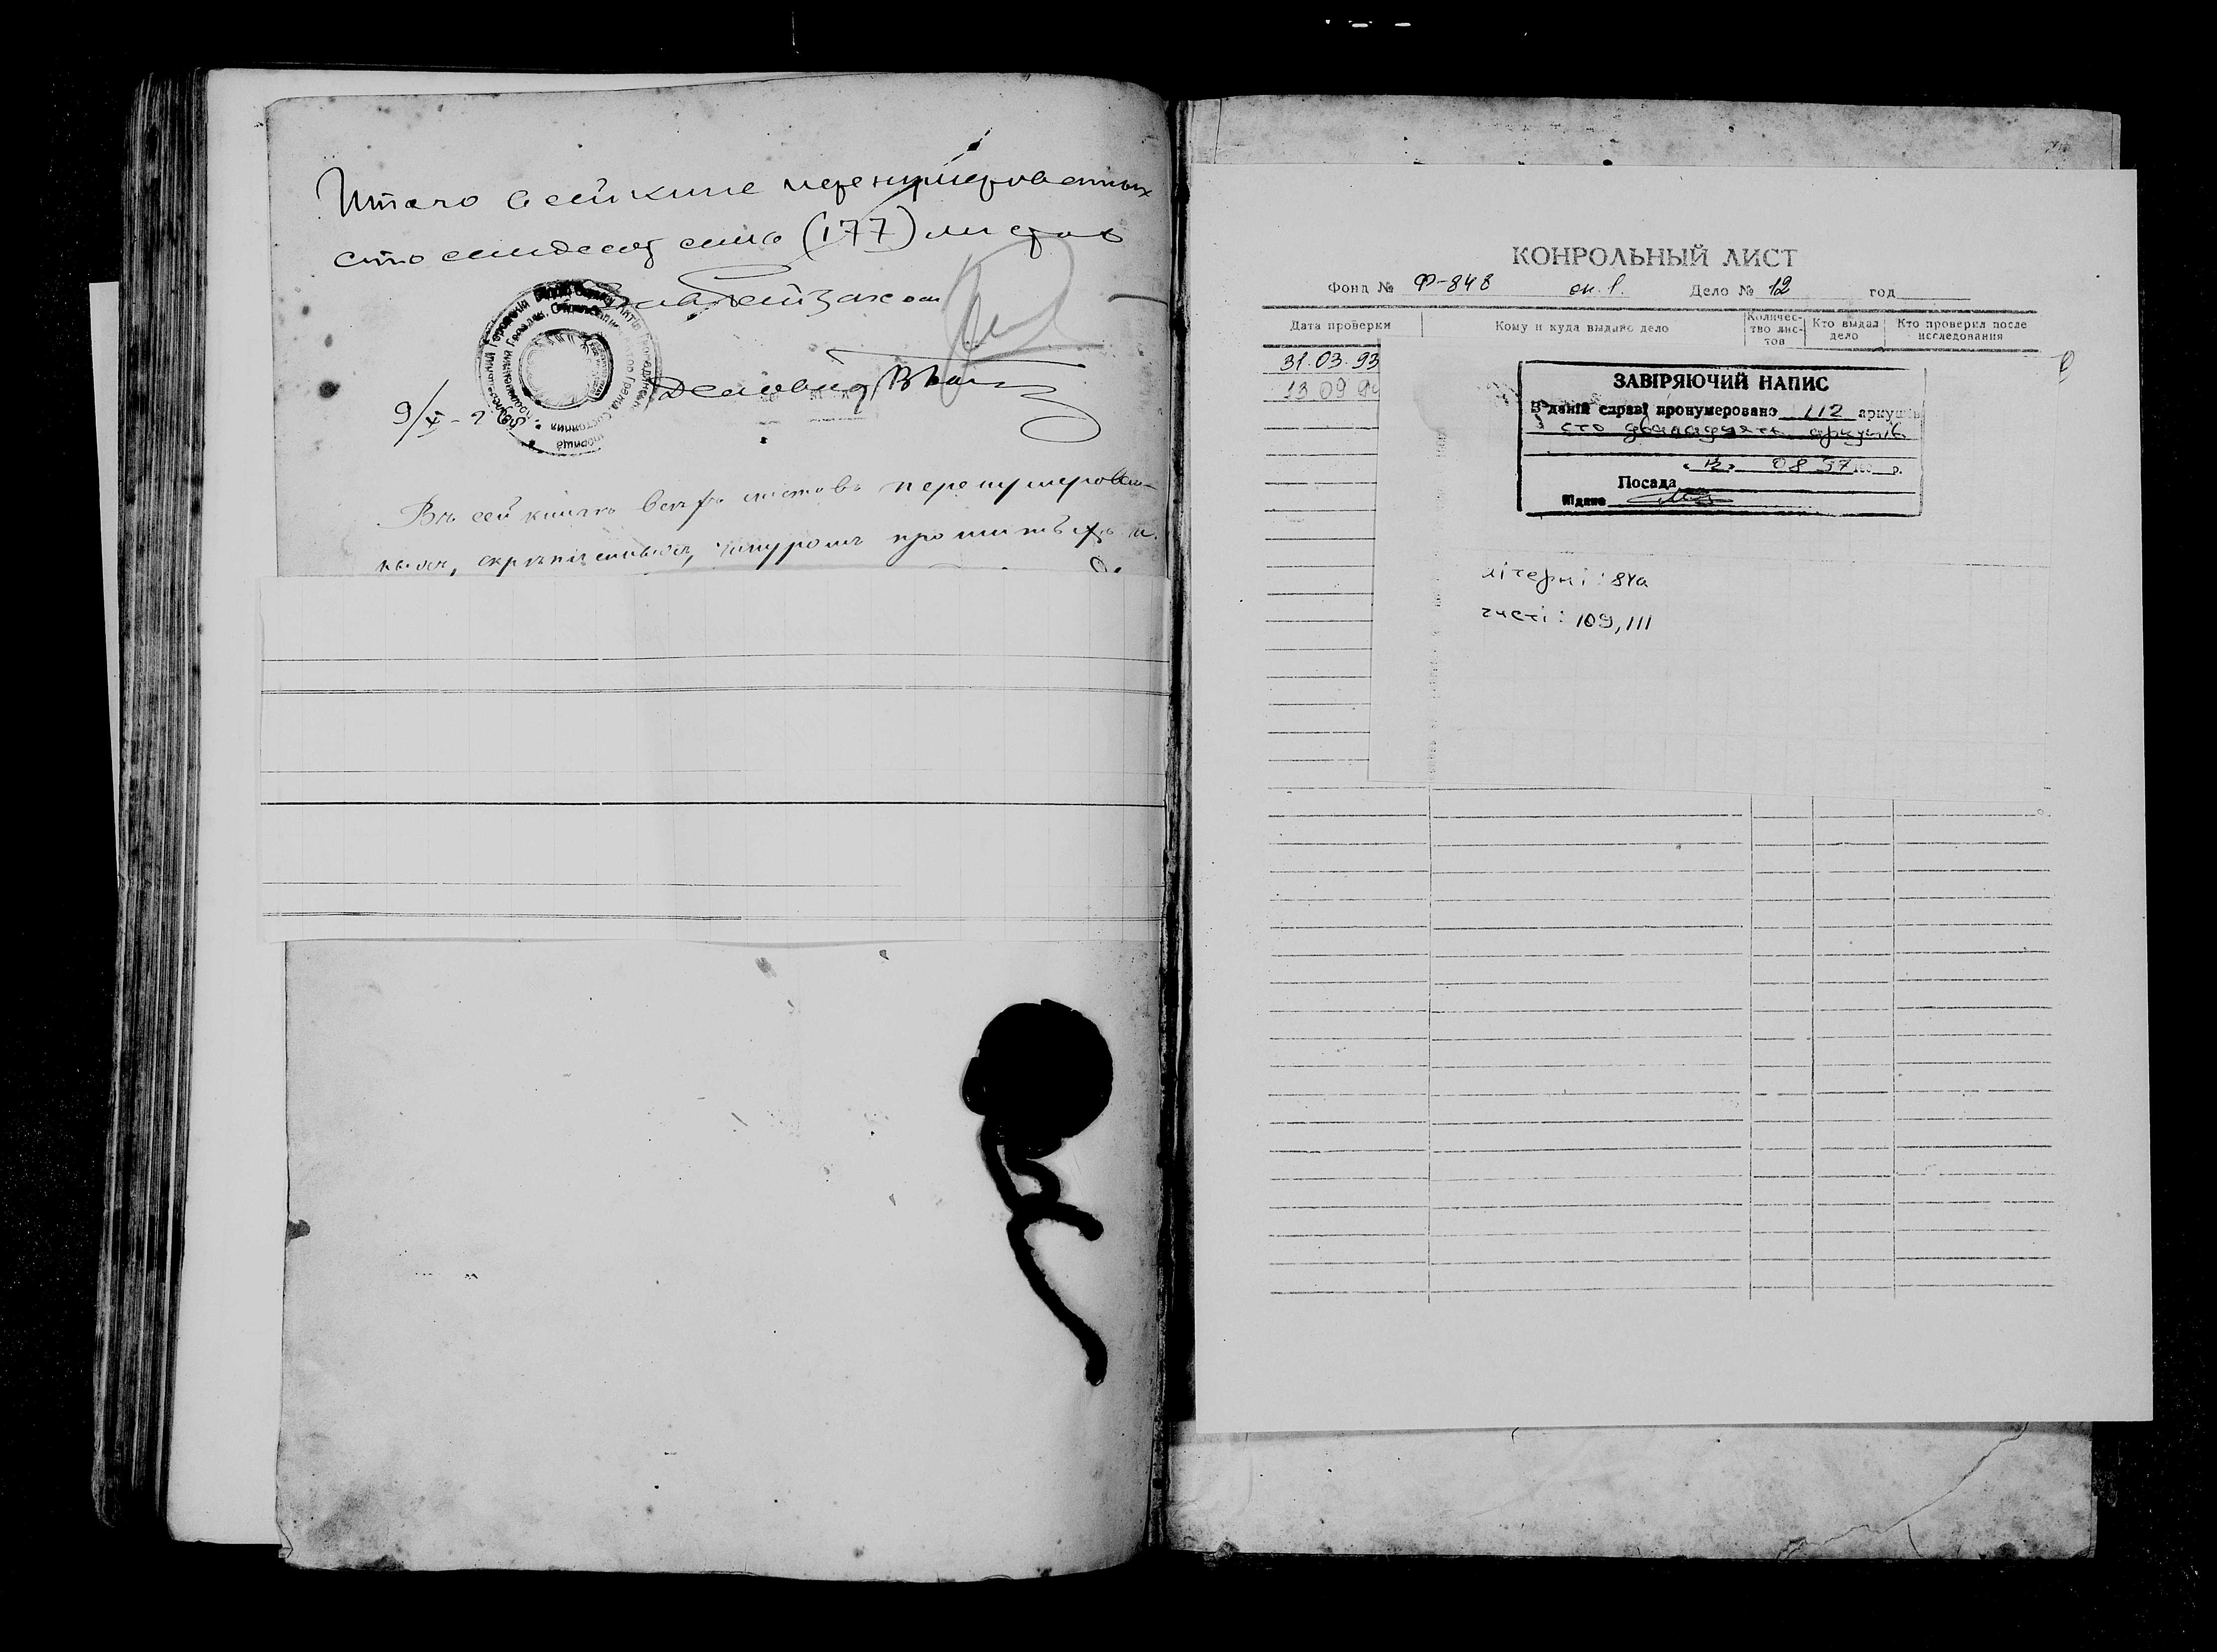 Итого в сей книге перенумерованных
сто семьдесят семь (177) листов
Завотзагсом
Деловод
9/X-2
Въ сей книгѣ всѣхъ листовъ перенумерован-
ныхъ, скрѣпленныхъ, шнуромъ прошитыхъ и
КОНРОЛЬНЫЙ ЛИСТ
Фонд № Ф-848 оп. 1. Дело № 12 год
Дата проверки Кому и куда выдано дело Количес-тво лис-тов Кто выдал дело Кто проверил после исследования
31.03.93
13 09 94
ЗАВІРЯЮЧИЙ НАПИС
В даній справі пронумеровано 112 аркушів
сто дванадцять аркушів
08 97 р.
Посада
Підпис
літерні: 84а
чисті: 109, 111